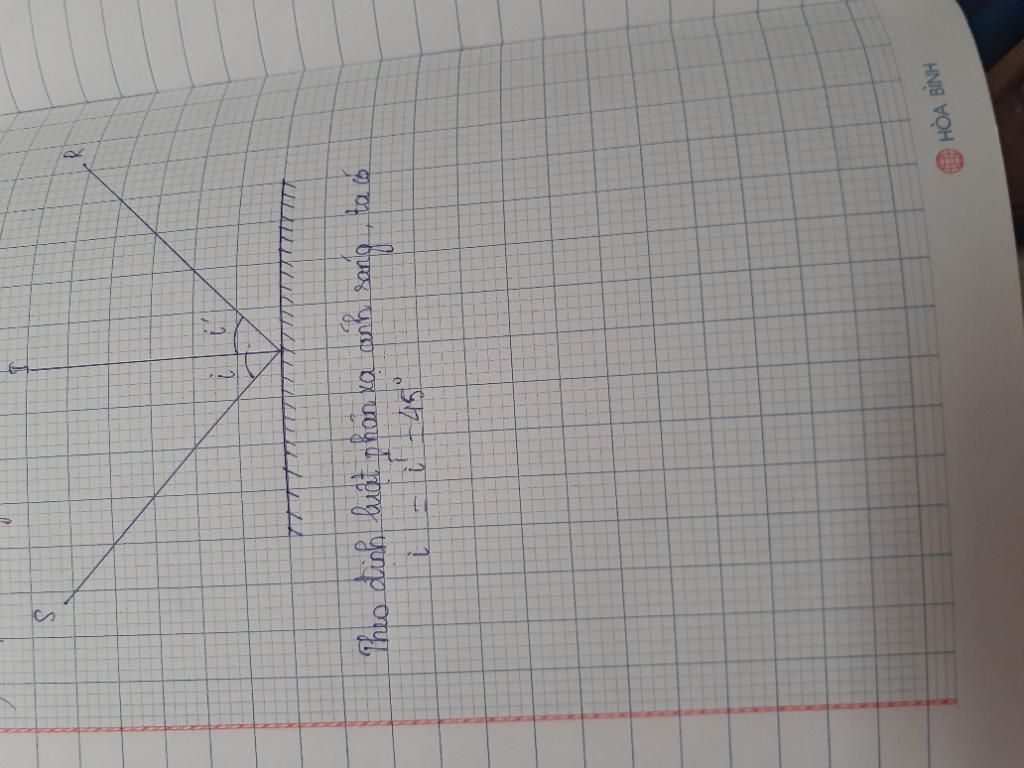 S
I
R
i i'
Theo định luật phản xạ ánh sáng, ta có
i = i' = 45°
HÒA BÌNH